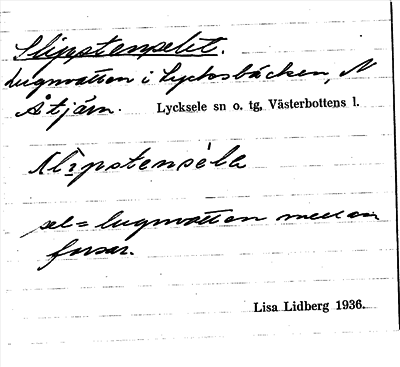 Slipstenselet.
Lugnvatten i Lycksbäcken, N
Åtjärn. Lycksele sn o. tg, Västerbottens l.
slipstensèla
sel = lugnvatten mellan
forsar.
Lisa Lidberg 1936.